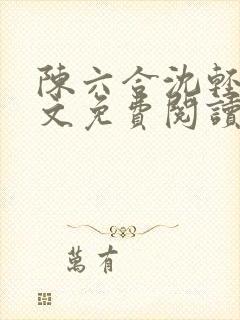 陳六合沈輕
文免費閱讀
萬有